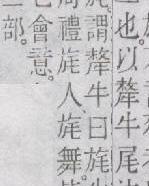 也。以犛牛尾
謂犛牛曰旄
周禮旄人旄舞
會意。
部。